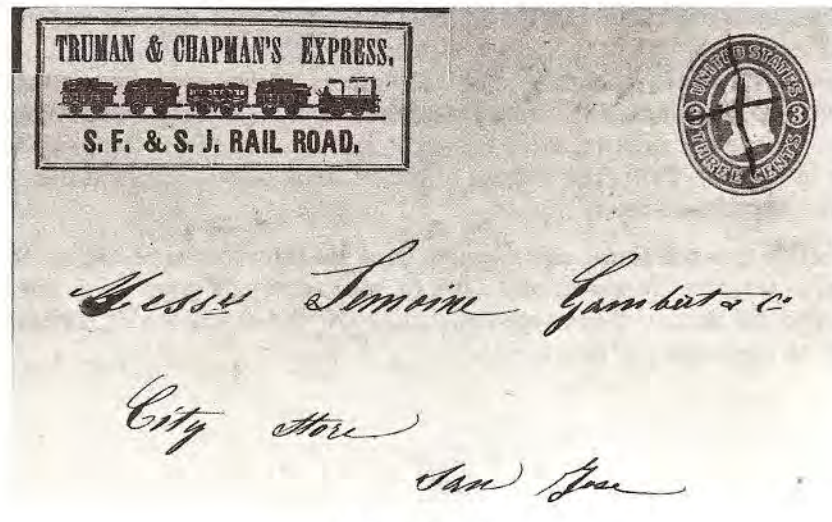 TRUMAN & CHAPMAN'S EXPRESS.
S. F. & S. J. RAIL ROAD.
UNITED STATES
3 3
THREE CENTS
Messrs Lemoine Gambert & Co
City Store
San Jose